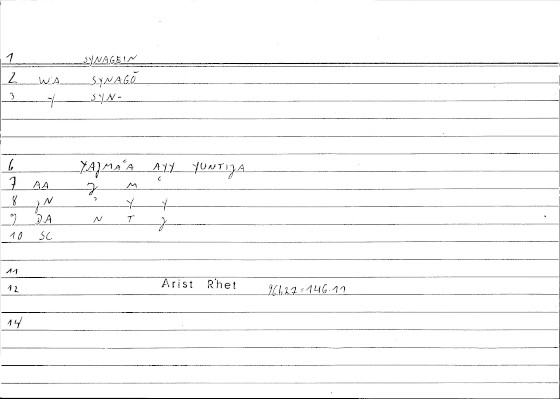 1 SYNAGEIN
2 WA SYNAGŌ
3 Y SYN-
6 YAJMAʿA AYY YUNTIJA
7 AA J M ʿ
8 JN ʾ Y Y
9 DA N T J
10 SC
11
12 Arist Rhet 96b27=146.11
14